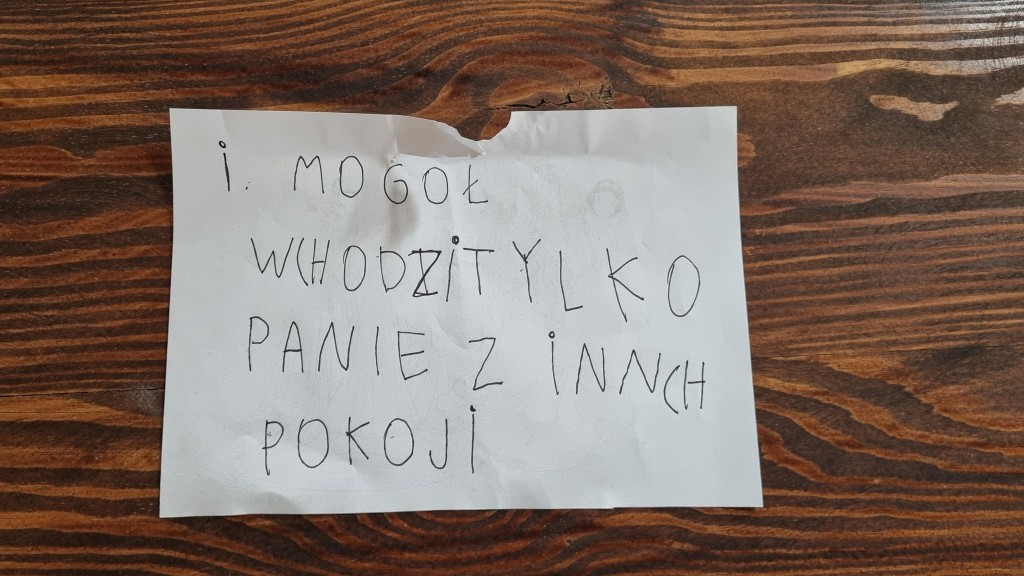 i. MOGOŁ
WCHODZiTYLKO
PANIE Z iNNCH
POKOJi